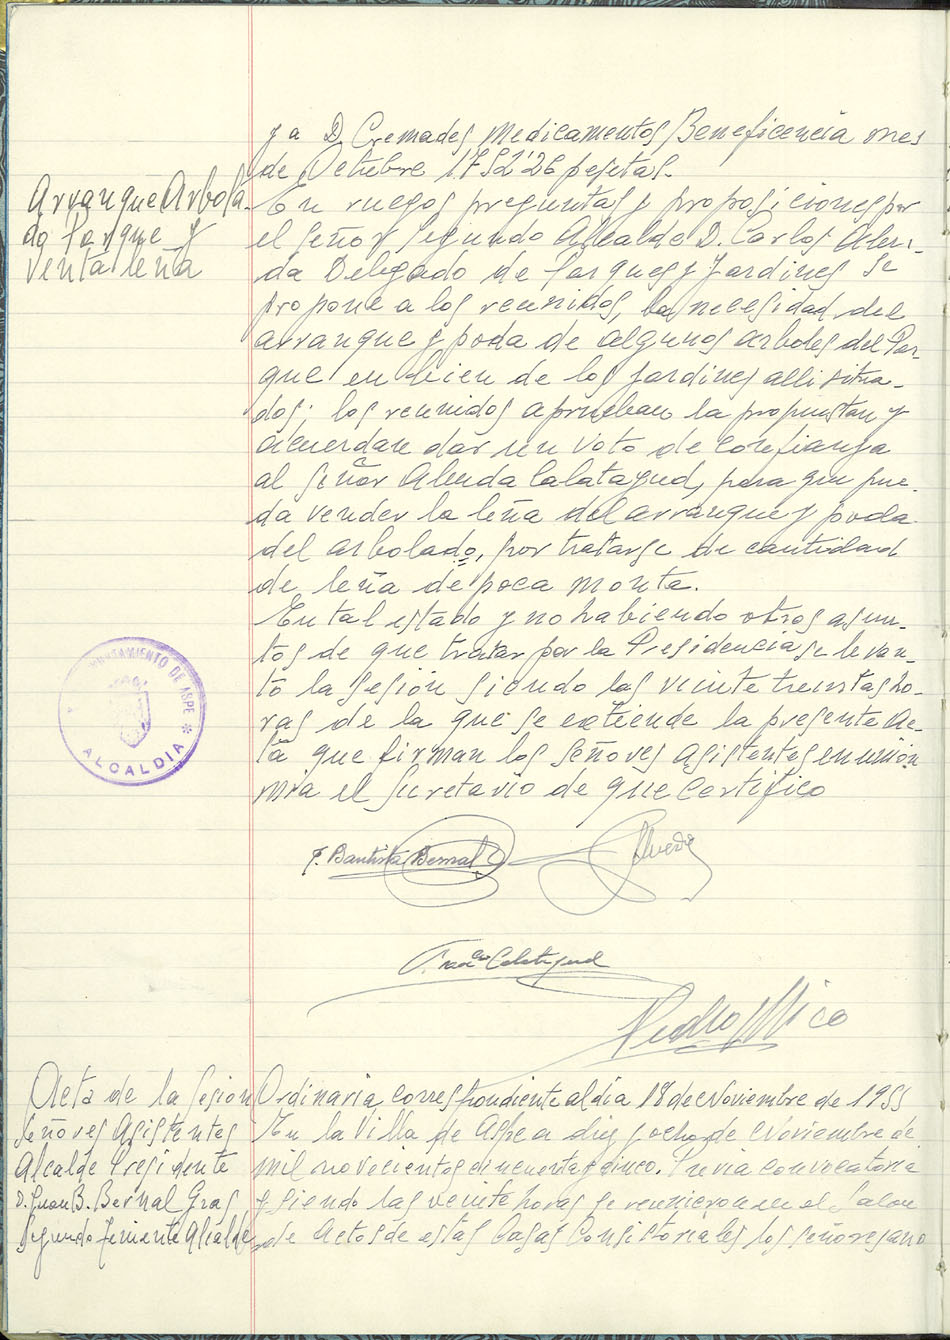 y a D. Cremades, Medicamentos Beneficencia mes
de Octubre 1752'26 pesetas.
Arranque Arbola-
do Parque y
Venta leña
En ruegos preguntas y proposiciones por
el Señor Segundo Alcalde D. Carlos Alen-
da Delegado de Parques y Jardines se
propone a los reunidos, la necesidad del
arranque y poda de algunos arboles del Par-
que en bien de los jardines alli situa-
dos; los reunidos aprueban la propuesta y
acuerdan dar un voto de confianza
al Señor Alenda Calatayud, para que pue-
da vender la leña del arranque y poda
del arbolado, por tratarse de cantidad
de leña de poca monta.
En tal estado y no habiendo otros asun-
tos de que tratar por la Presidencia se levan-
tó la sesión siendo las veinte treintas ho-
ras de la que se extiende la presente ac-
ta que firman los señores asistentes en unión
mia el Secretario de que certifico
AYUNTAMIENTO DE ASPE * ALCALDIA
J. Bautista Bernal
Franco Calatayud
Pedro Mico
Acta de la Sesion Ordinaria correspondiente al dia 18 de Noviembre de 1955
Señores Asistentes
Alcalde Presidente
D. Juan B. Bernal Gras
Segundo Teniente Alcalde
En la Villa de Aspe a diez y ocho de Noviembre de
mil novecientos cincuenta y cinco. Previa convocatoria
y siendo las veinte horas se reunieron en el Salon
de Actos de estas Casas Consistoriales los señores ano